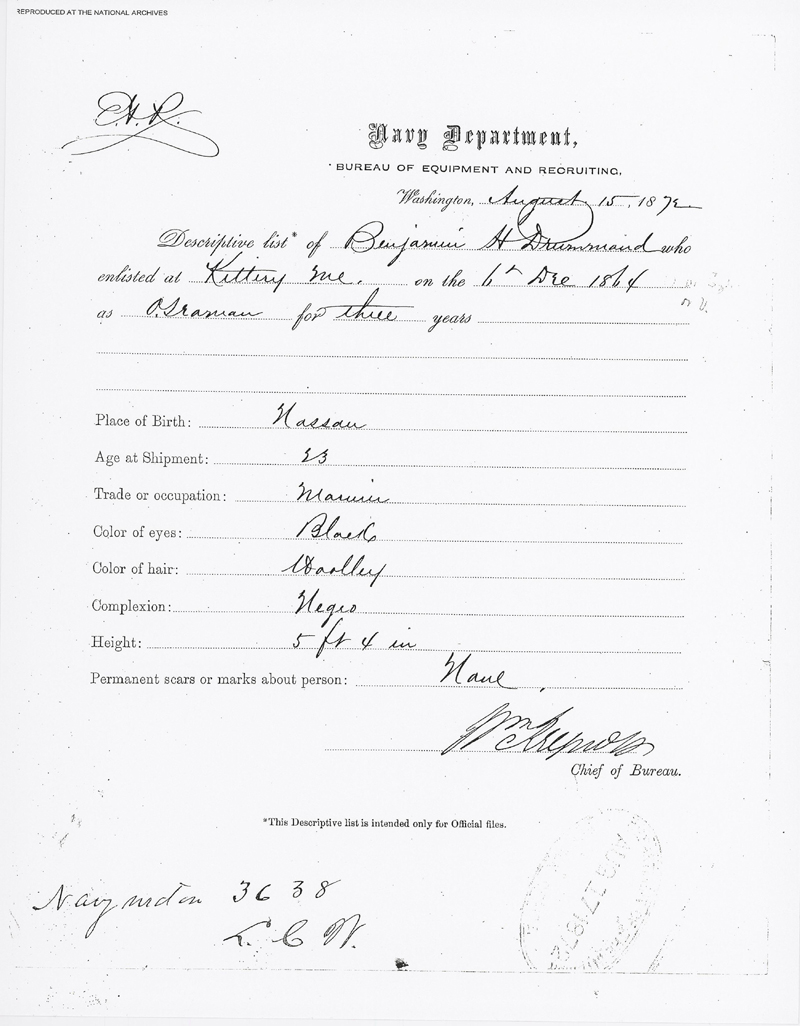 REPRODUCED AT THE NATIONAL ARCHIVES
H.R.
Navy Department,
BUREAU OF EQUIPMENT AND RECRUITING,
Washington, August 15, 1872
Descriptive list* of Benjamin H Drummond who
enlisted at Kittery Me. on the 6th Dec 1864
as O.Seaman for three years
Place of Birth: Nassau
Age at Shipment: 23
Trade or occupation: Marine
Color of eyes: Black
Color of hair: Woolley
Complexion: Negro
Height: 5 ft 4 in
Permanent scars or marks about person: None
Wm Reynolds
Chief of Bureau.
*This Descriptive list is intended only for Official files.
Navy 3638
L. C W.
AUG 17 1872